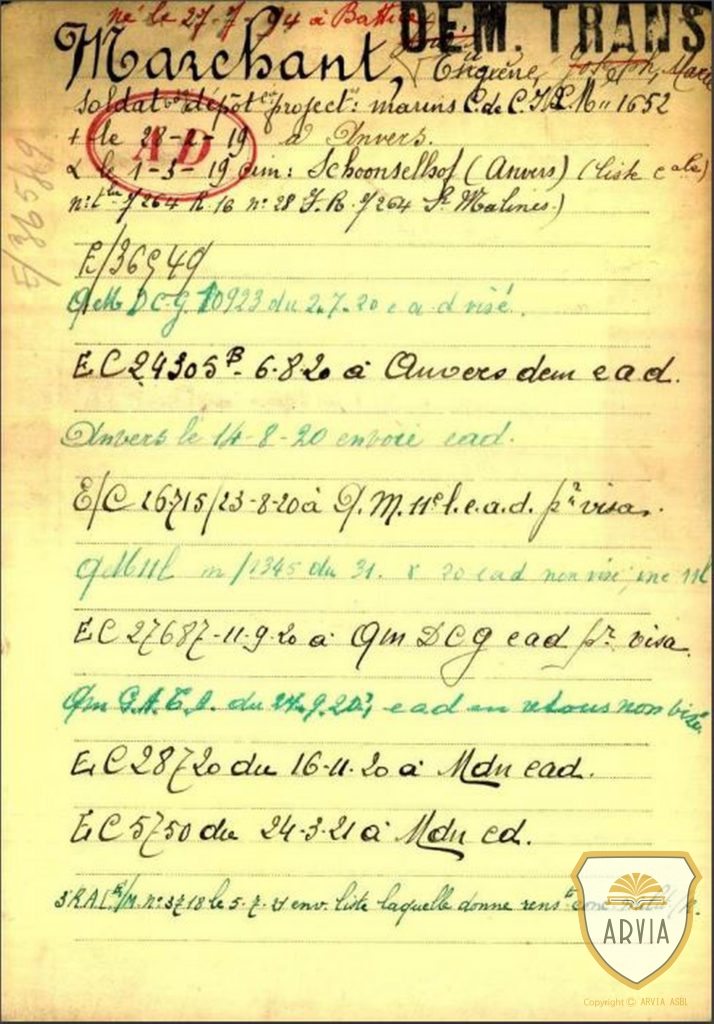 né le 27-7-94 à Battice
DEM. TRANS
Marchant, Eugène, Joseph, Marie
soldat dépôt project: marins C. de C. I. L. M 11 1652
+ le 28-2-19 à Anvers.
AD
le 1-3-19 cim: Schoonselhof (Anvers) (liste cale)
n: 7/264 R. 16 n° 28 F. R. 7/264 St Malines)
5/36549
E/36549
QM DCG 10923 du 2.7.20 e a d visé.
EC 24305B - 6-8-20 à Anvers dem e a d.
Anvers le 14-8-20 envoie ead.
E/C 26715/23-8-20 à Q. M. 11e l. e. a. d. pr visa.
QM 11l m/1345 du 31. 20 ead non visé, inc 11l
EC 27687-11-9-20 à Qm DCG ead pr visa
Qm G.A.C.A. du 24.9.20, ead en retour non visé
EC 28720 du 16-11-20 à Mdn ead.
EC 5750 du 24-3-21 à Mdn cd.
3 RAC /M. n° 3718 le 5-7-21 env. liste laquelle donne renst
ARVIA
Copyright © ARVIA ASBL